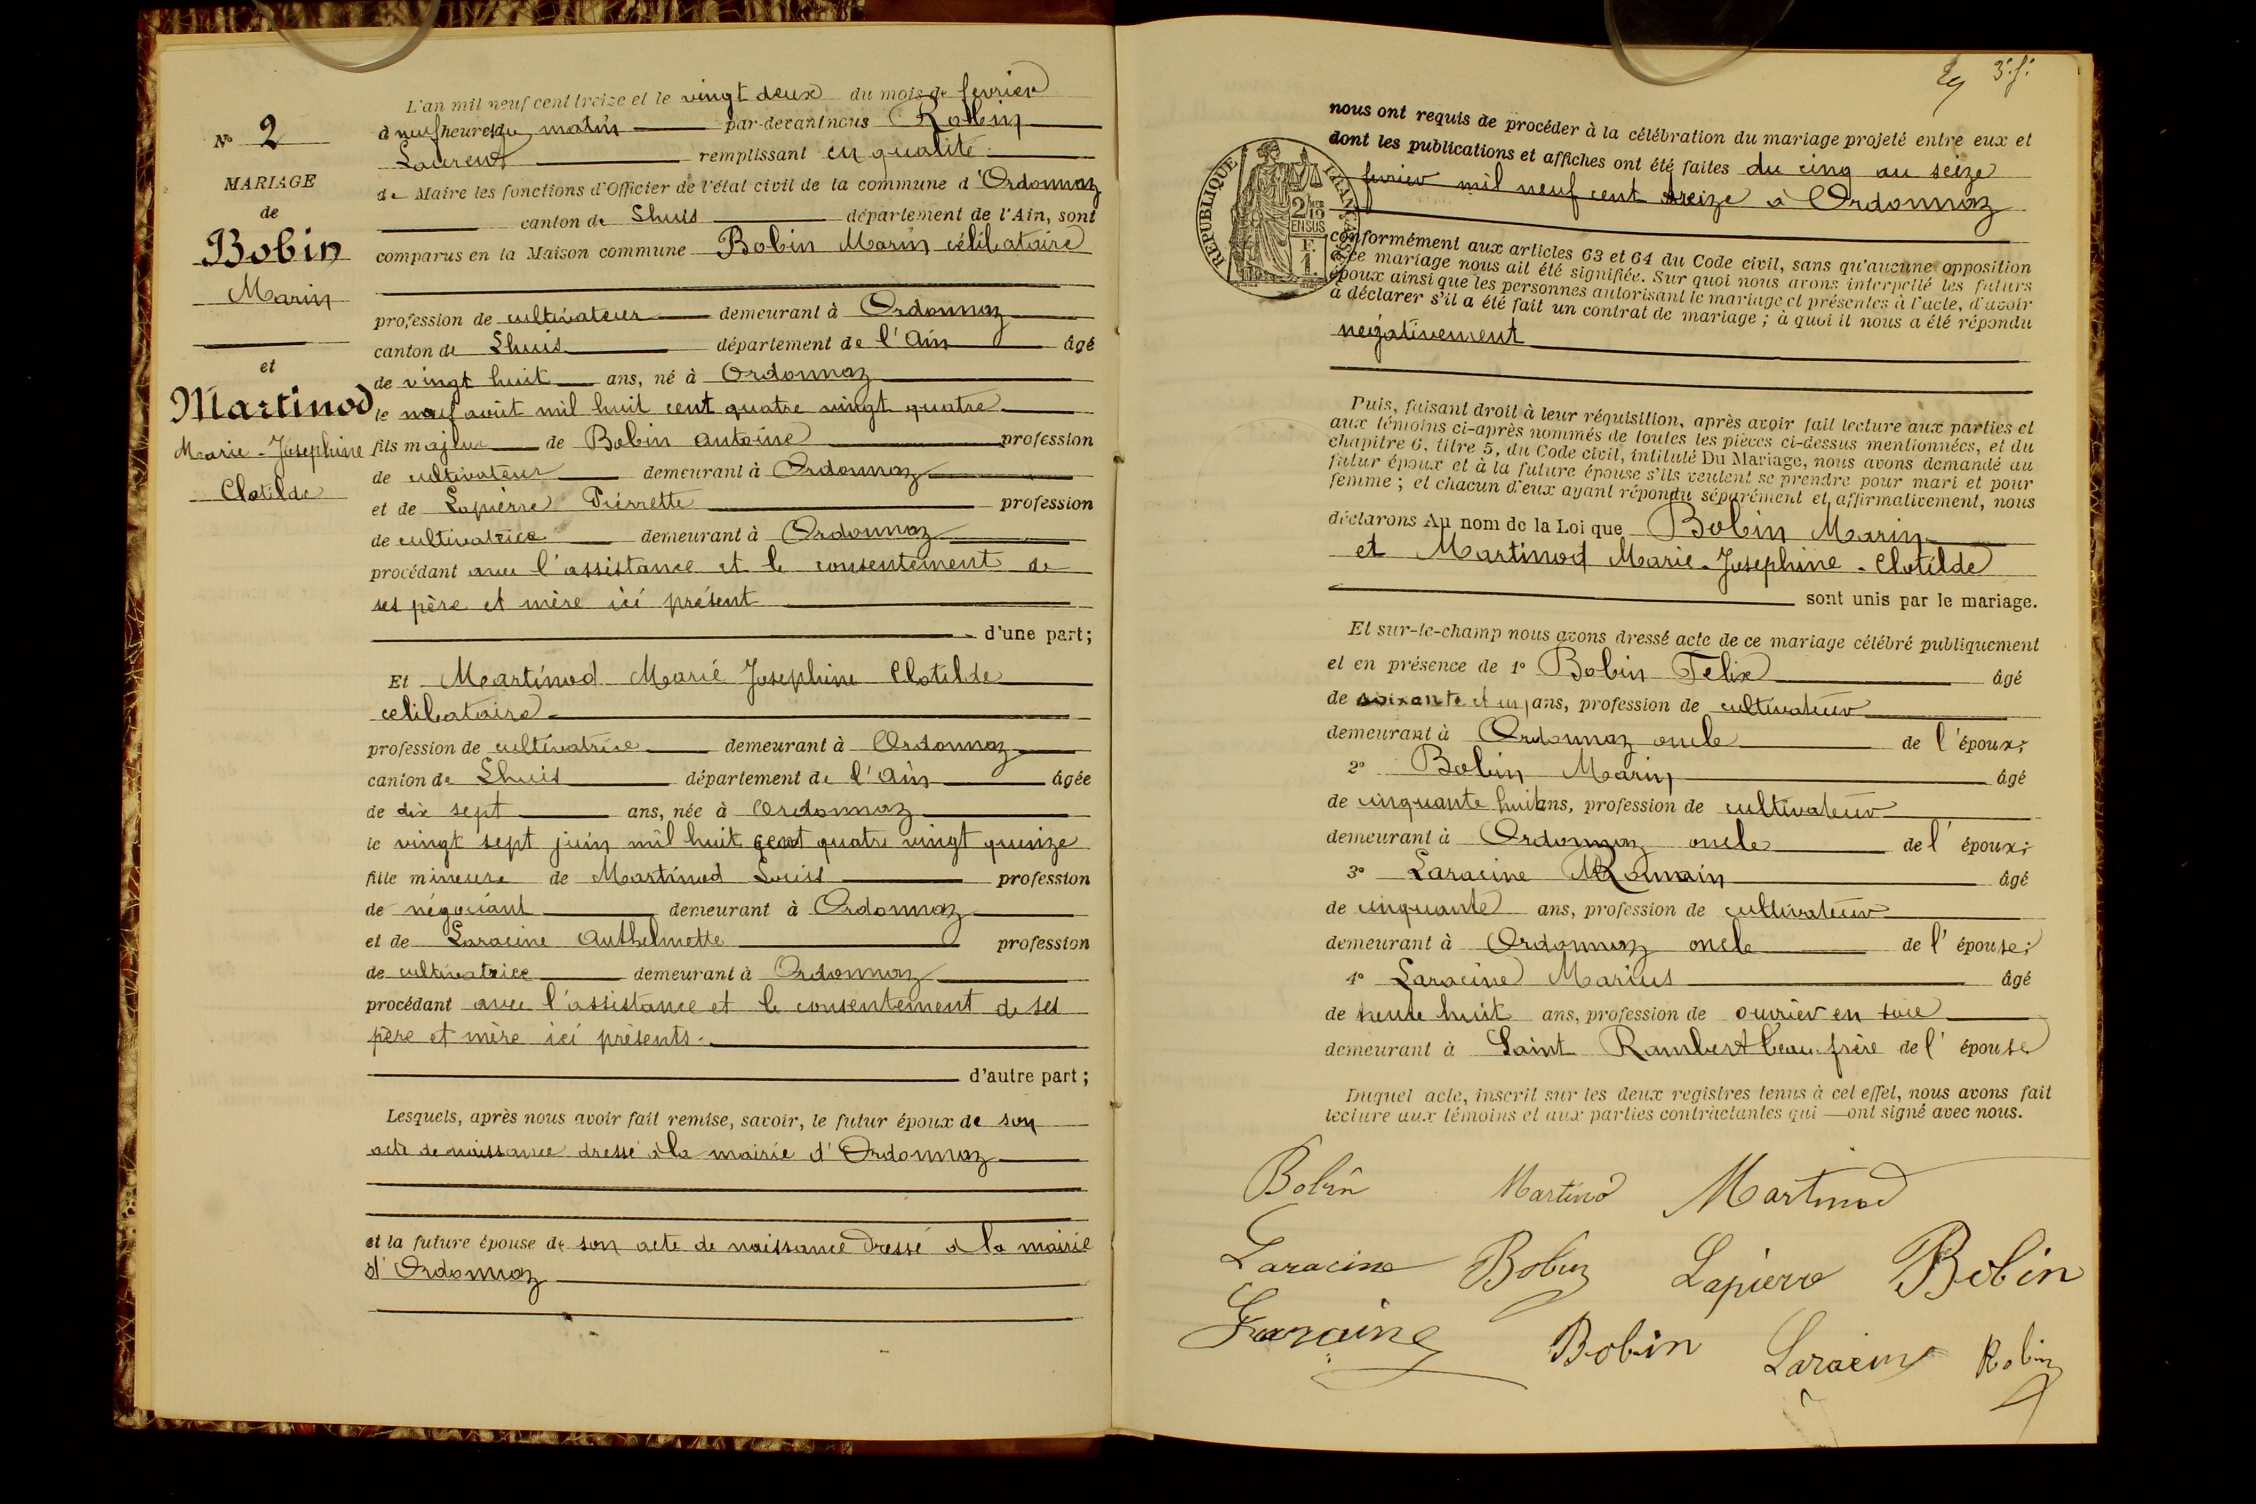 L'an mil neuf cent treize et le vingt deux du mois de fevrier
à neuf heures du matin par-devant nous Robin
Laurent remplissant en qualité
de Maire les fonctions d'Officier de l'état civil de la commune d'Ordonnaz
canton de Lhuis département de l'Ain, sont
comparus en la Maison commune Bobin Marin célibataire
profession de cultivateur demeurant à Ordonnaz
canton de Lhuis département de l'Ain âgé
de vingt huit ans, né à Ordonnaz
le neuf août mil huit cent quatre vingt quatre
fils majeur de Bobin Antoine profession
de cultivateur demeurant à Ordonnaz
et de Lapierre Pierrette profession
de cultivatrice demeurant à Ordonnaz
procédant avec l'assistance et le consentement de
ses père et mère ici présent
d'une part;
Et Martinod Marie Josephine Clotilde
celibataire
profession de cultivatrice demeurant à Ordonnaz
canton de Lhuis département de l'Ain âgée
de dix sept ans, née à Ordonnaz
le vingt sept juin mil huit cent quatre vingt quinze
fille mineure de Martinod Louis profession
de négociant demeurant à Ordonnaz
et de Laracine Anthelmette profession
de cultivatrice demeurant à Ordonnaz
procédant avec l'assistance et le consentement de ses
père et mère ici présents.
d'autre part;
Lesquels, après nous avoir fait remise, savoir, le futur époux de son
acte de naissance dressé à la mairie d'Ordonnaz
et la future épouse de son acte de naissance dressé à la mairie
d'Ordonnaz
No 2
MARIAGE
de
Bobin
Marin
et
Martinod
Marie-Josephine
Clotilde
3e f.
nous ont requis de procéder à la célébration du mariage projeté entre eux et
dont les publications et affiches ont été faites du cinq au seize
fevrier mil neuf cent treize à Ordonnaz
RÉPUBLIQUE FRANÇAISE
2/10 EN SUS
F. 1.
conformément aux articles 63 et 64 du Code civil, sans qu'aucune opposition
à ce mariage nous ait été signifiée. Sur quoi nous avons interpellé les futurs
époux ainsi que les personnes autorisant le mariage et présentes à l'acte, d'avoir
à déclarer s'il a été fait un contrat de mariage; à quoi il nous a été répondu
negativement
Puis, faisant droit à leur réquisition, après avoir fait lecture aux parties et
aux témoins ci-après nommés de toutes les pièces ci-dessus mentionnées, et du
chapitre 6, titre 5, du Code civil, intitulé Du Mariage, nous avons demandé au
futur époux et à la future épouse s'ils veulent se prendre pour mari et pour
femme; et chacun d'eux ayant répondu séparément et affirmativement, nous
déclarons Au nom de la Loi que Bobin Marin
et Martinod Marie-Josephine-Clotilde
sont unis par le mariage.
Et sur-le-champ nous avons dressé acte de ce mariage célébré publiquement
et en présence de 1° Bobin Felix âgé
de soixante et un ans, profession de cultivateur
demeurant à Ordonnaz oncle de l'époux;
2° Bobin Marin âgé
de cinquante huit ans, profession de cultivateur
demeurant à Ordonnaz oncle de l'époux;
3° Laracine Romain âgé
de cinquante ans, profession de cultivateur
demeurant à Ordonnaz oncle de l'épouse;
4° Laracine Marius âgé
de trente huit ans, profession de ouvrier en soie
demeurant à Saint Rambert beau-frère de l'épouse
Duquel acte, inscrit sur les deux registres tenus à cet effet, nous avons fait
lecture aux témoins et aux parties contractantes qui ont signé avec nous.
Bobin Martinod Martinod
Laracine Bobin Lapierre Bobin
Laracine Bobin Laracine Robin